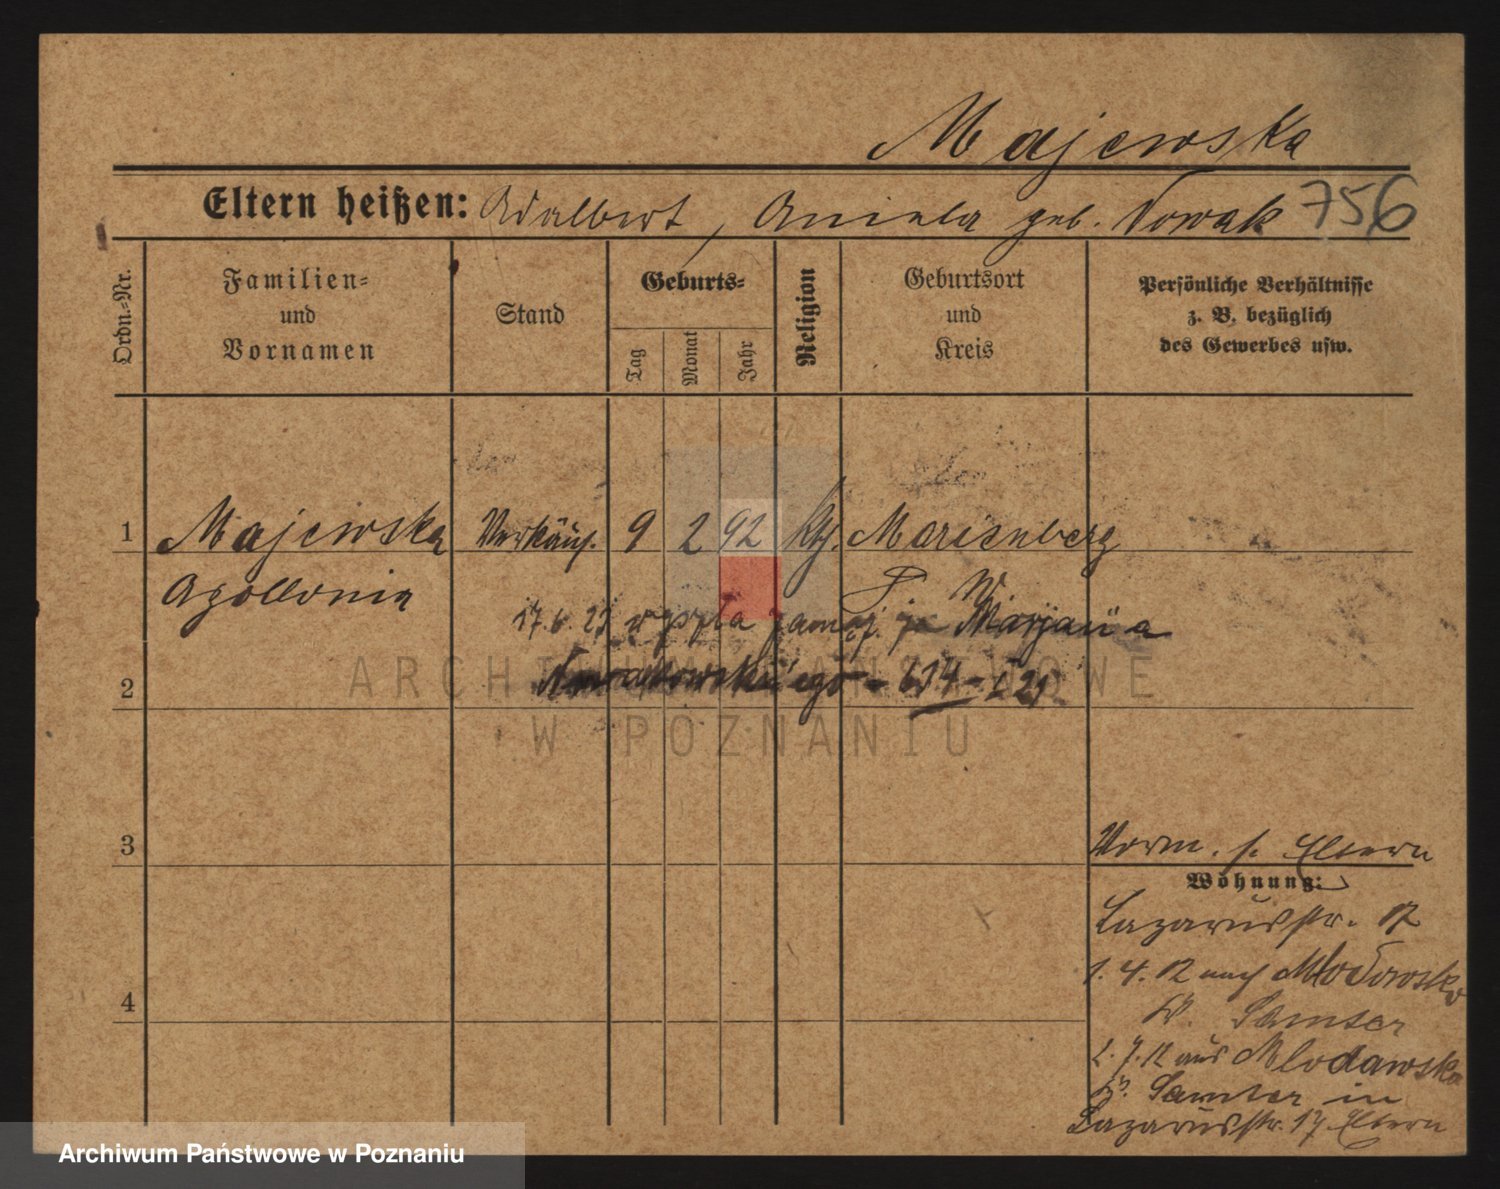 Majewska
Eltern heißen: Adalbert, Aniela geb. Nowak 756
Ordn.-Nr.
Familien- und Vornamen
Stand
Geburts-
Tag
Monat
Jahr
Religion
Geburtsort und Kreis
Persönliche Verhältnisse z. B. bezüglich des Gewerbes usw.
1 Majewska Verkäuf. 9 2 92 kth. Marienberg
Apollonia P. W.
17.6.21 wyszła zamąż. ja Marjana
2 Nowakowskiego - 634 - 21
3 Vorm. s. Eltern
Wohnung:
Lazarusstr. 17
1.4.12 nach Mlodawsko
Kr. Samter
4
2.7.12 aus Mlodawsko
Kr. Samter in
Lazarusstr. 17 Eltern
ARCHIWUM PAŃSTWOWE
W POZNANIU
Archiwum Państwowe w Poznaniu